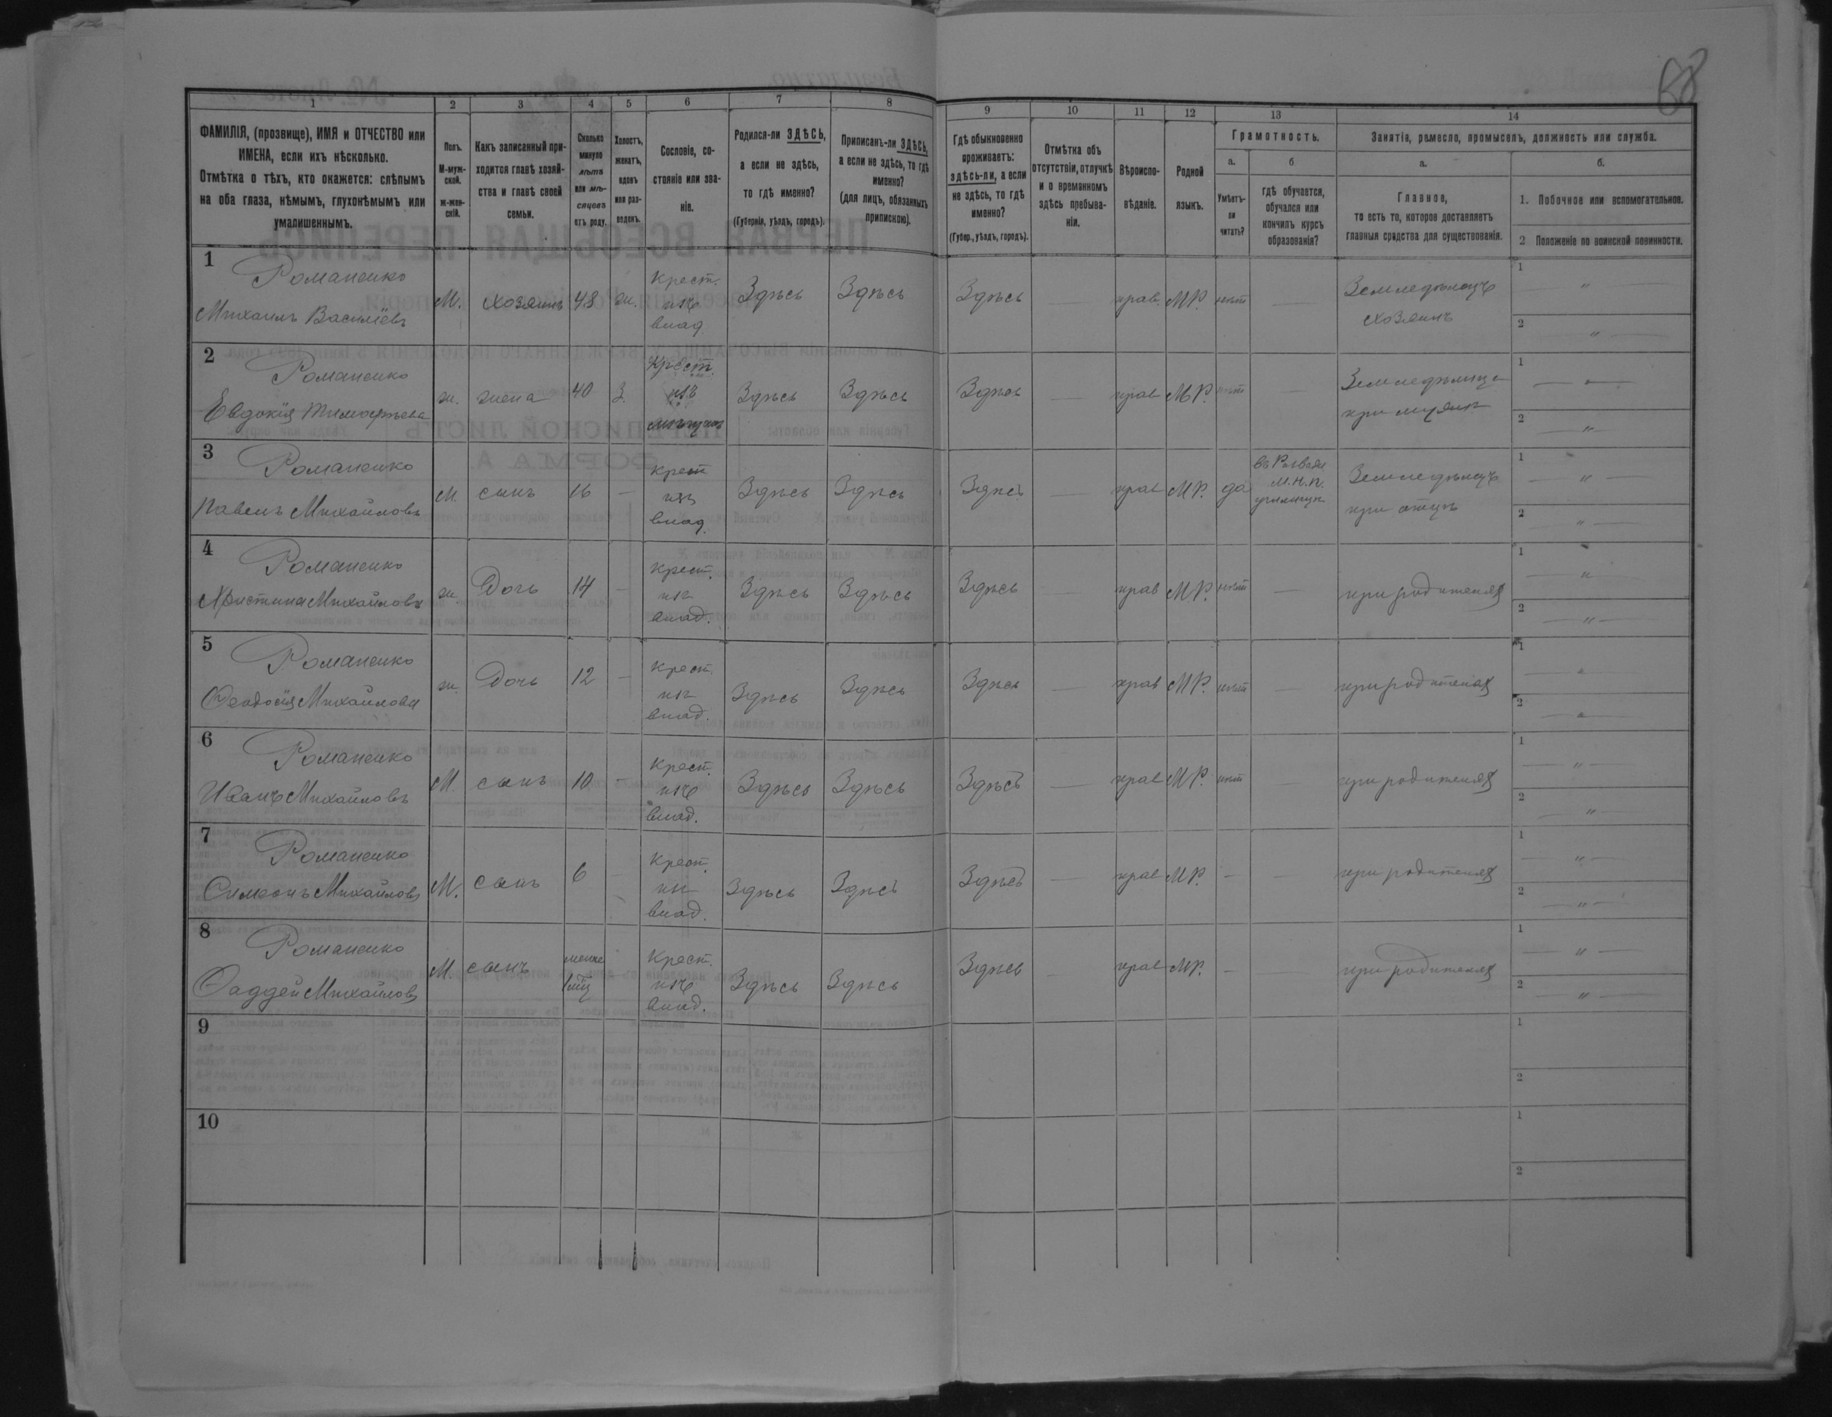 68
1
2
3
4
5
6
7
8
9
10
11
12
13
14
ФАМИЛІЯ, (прозвище), ИМЯ и ОТЧЕСТВО или
ИМЕНА, если ихъ нѣсколько.
Отмѣтка о тѣхъ, кто окажется: слѣпымъ
на оба глаза, нѣмымъ, глухонѣмымъ или
умалишеннымъ.
Полъ.
М-муж-
ской.
ж-жен-
скій.
Какъ записанный при-
ходится главѣ хозяй-
ства и главѣ своей
семьи.
Сколько
минуло
лѣтъ
или мѣ-
сяцевъ
отъ роду.
Холостъ,
женатъ,
вдовъ
или раз-
веденъ.
Сословіе, со-
стояніе или зва-
ніе.
Родился-ли ЗДѢСЬ,
а если не здѣсь,
то гдѣ именно?
(Губернія, уѣздъ, городъ).
Приписанъ-ли ЗДѢСЬ,
а если не здѣсь, то гдѣ
именно?
(для лицъ, обязанныхъ
припискою).
Гдѣ обыкновенно
проживаетъ:
здѣсь-ли, а если
не здѣсь, то гдѣ
именно?
(Губер., уѣздъ, городъ).
Отмѣтка объ
отсутствіи, отлучкѣ
и о временномъ
здѣсь пребыва-
ніи.
Вѣроиспо-
вѣданіе.
Родной
языкъ.
Грамотность.
а.
Умѣетъ-
ли
читать?
б
гдѣ обучается,
обучался или
кончилъ курсъ
образованія?
Занятія, ремесло, промыселъ, должность или служба.
а.
Главное,
то есть то, которое доставляетъ
главныя средства для существованія.
б.
1. Побочное или вспомогательное.
2 Положеніе по воинской повинности.
1
Романенко
Михаилъ Васильевъ
М.
хозяинъ
48
ж.
Крест.
изъ
влад
Здѣсь
Здѣсь
Здѣсь
прав.
МР.
нѣтъ
—
Земледѣлецъ
хозяинъ
1 "
2 "
2
Романенко
Евдокія Тимофѣева
ж.
жена
40
З
Крест.
изъ
Здѣсь
Здѣсь
Здѣсь
—
прав
МР.
нѣтъ
—
при мужѣ
1 — " —
2 — " —
3
Романенко
Павелъ Михайловъ
М
сынъ
16
—
крест
изъ
влад.
Здѣсь
Здѣсь
Здѣсь
—
прав
МР.
да
М.Н.П.
училищѣ
Земледѣлецъ
при отцѣ
1 — " —
2 — " —
4
Романенко
Христина Михайлова
ж.
Дочь
14
—
крест.
изъ
влад.
Здѣсь
Здѣсь
Здѣсь
—
прав
МР.
нѣтъ
—
при родителяхъ
1 "
2 — " —
5
Романенко
Феодосія Михайлова
ж.
Дочь
12
—
крест.
изъ
влад.
Здѣсь
Здѣсь
Здѣсь
—
прав
МР.
нѣтъ
—
при родителяхъ
1 "
2 — " —
6
Романенко
Иванъ Михайловъ
М
сынъ
10
—
Крест.
изъ
влад.
Здѣсь
Здѣсь
Здѣсь
—
прав
МР.
нѣтъ
—
при родителяхъ
1 — " —
2 "
7
Романенко
Симеонъ Михайловъ
М.
сынъ
6
Крест.
изъ
влад.
Здѣсь
Здѣсь
Здѣсь
—
прав
МР.
—
—
при родителяхъ
1 — " —
2 — " —
8
Романенко
Фаддей Михайловъ
М.
сынъ
Крест.
изъ
влад.
Здѣсь
Здѣсь
Здѣсь
—
прав
МР.
—
при родителяхъ
1 — " —
2 — " —
9
1
2
10
1
2